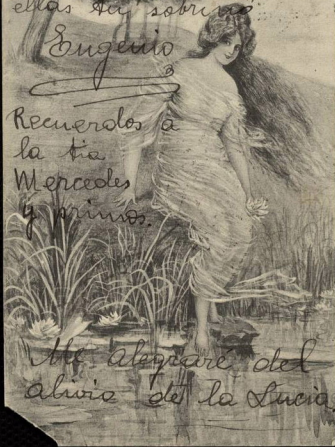 ellas tu sobrino
Eugenio
Recuerdos á
la tia
Mercedes
y primos.
Me alegraré del
alivio de la Lucia